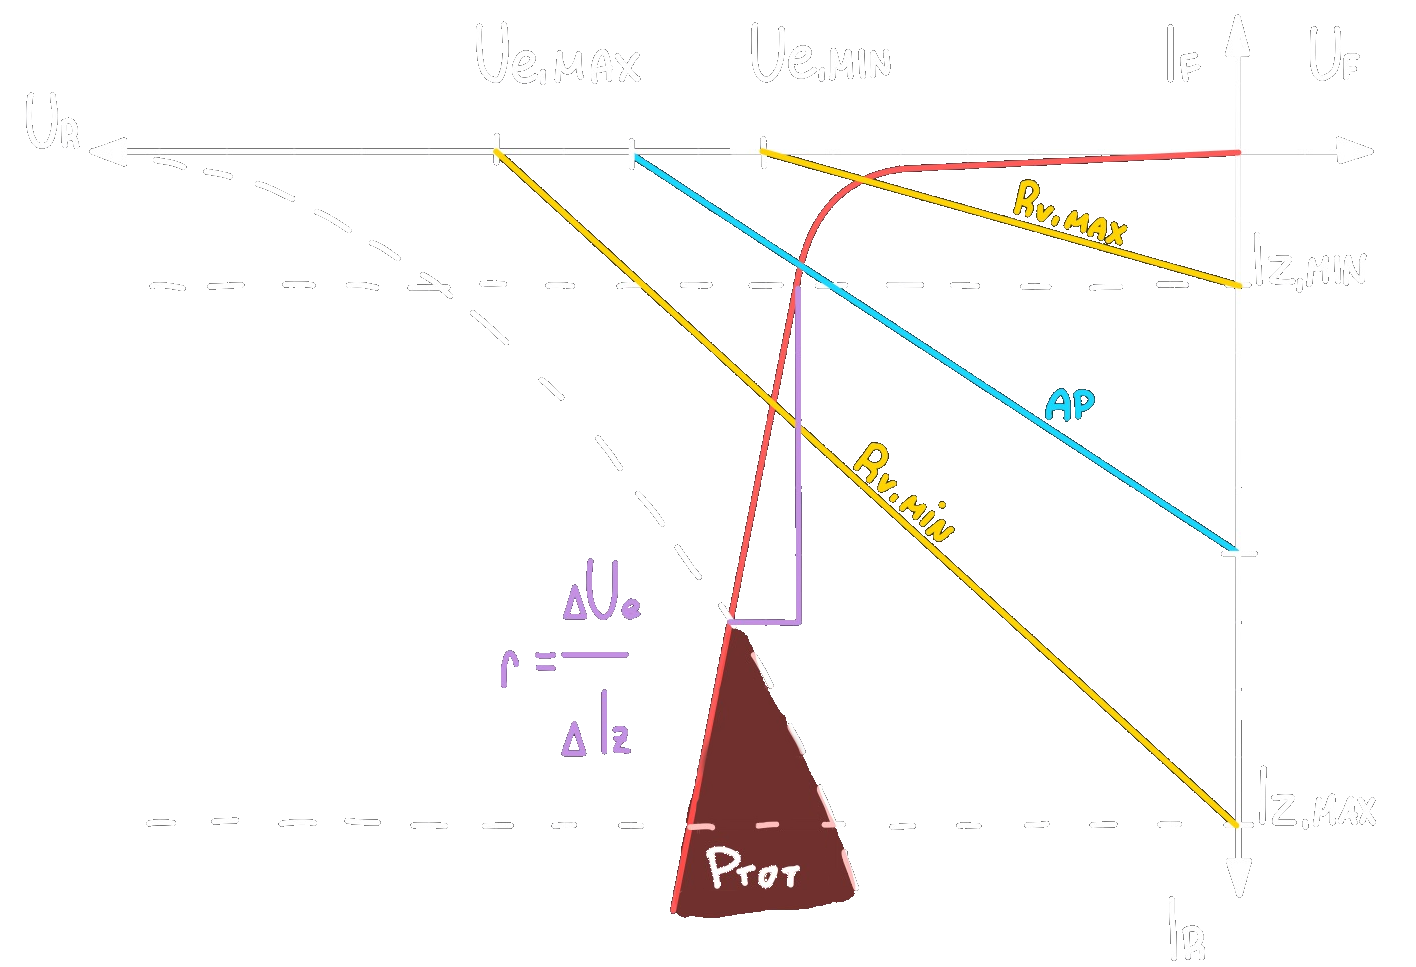 Ue,MAX
Ue,MIN
IF
UF
UR
Rv.MAX
Iz,MIN
AP
Rv.Min
r = ΔUe
ΔIz
Iz,MAX
PTOT
IR